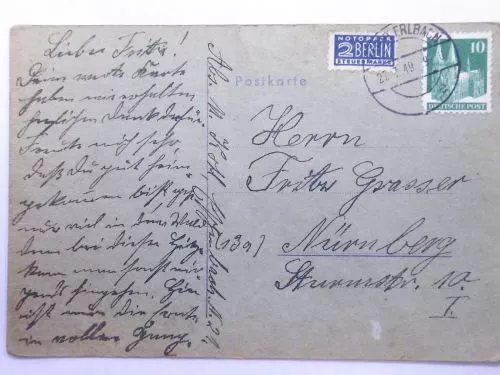 Lieber Fritz!
Deine werte Karte
haben wir erhalten
herzlichen Dank dafür.
Freute mich sehr,
daß Du gut heim
gekommen bist geh
nur viel in den Wald
denn bei dieser Hitze
kann man sonst nir
gends hingehen. Hier
ist man die Ernte
in vollem Gang.
Abs. M.
NOTOPFER
2 BERLIN
STEUERMARKE
ERLBACH
49
10
DEUTSCHE POST
Postkarte
Herrn
Fritz Grasser
(13a) Nürnberg
Sturmstr. 10
I.